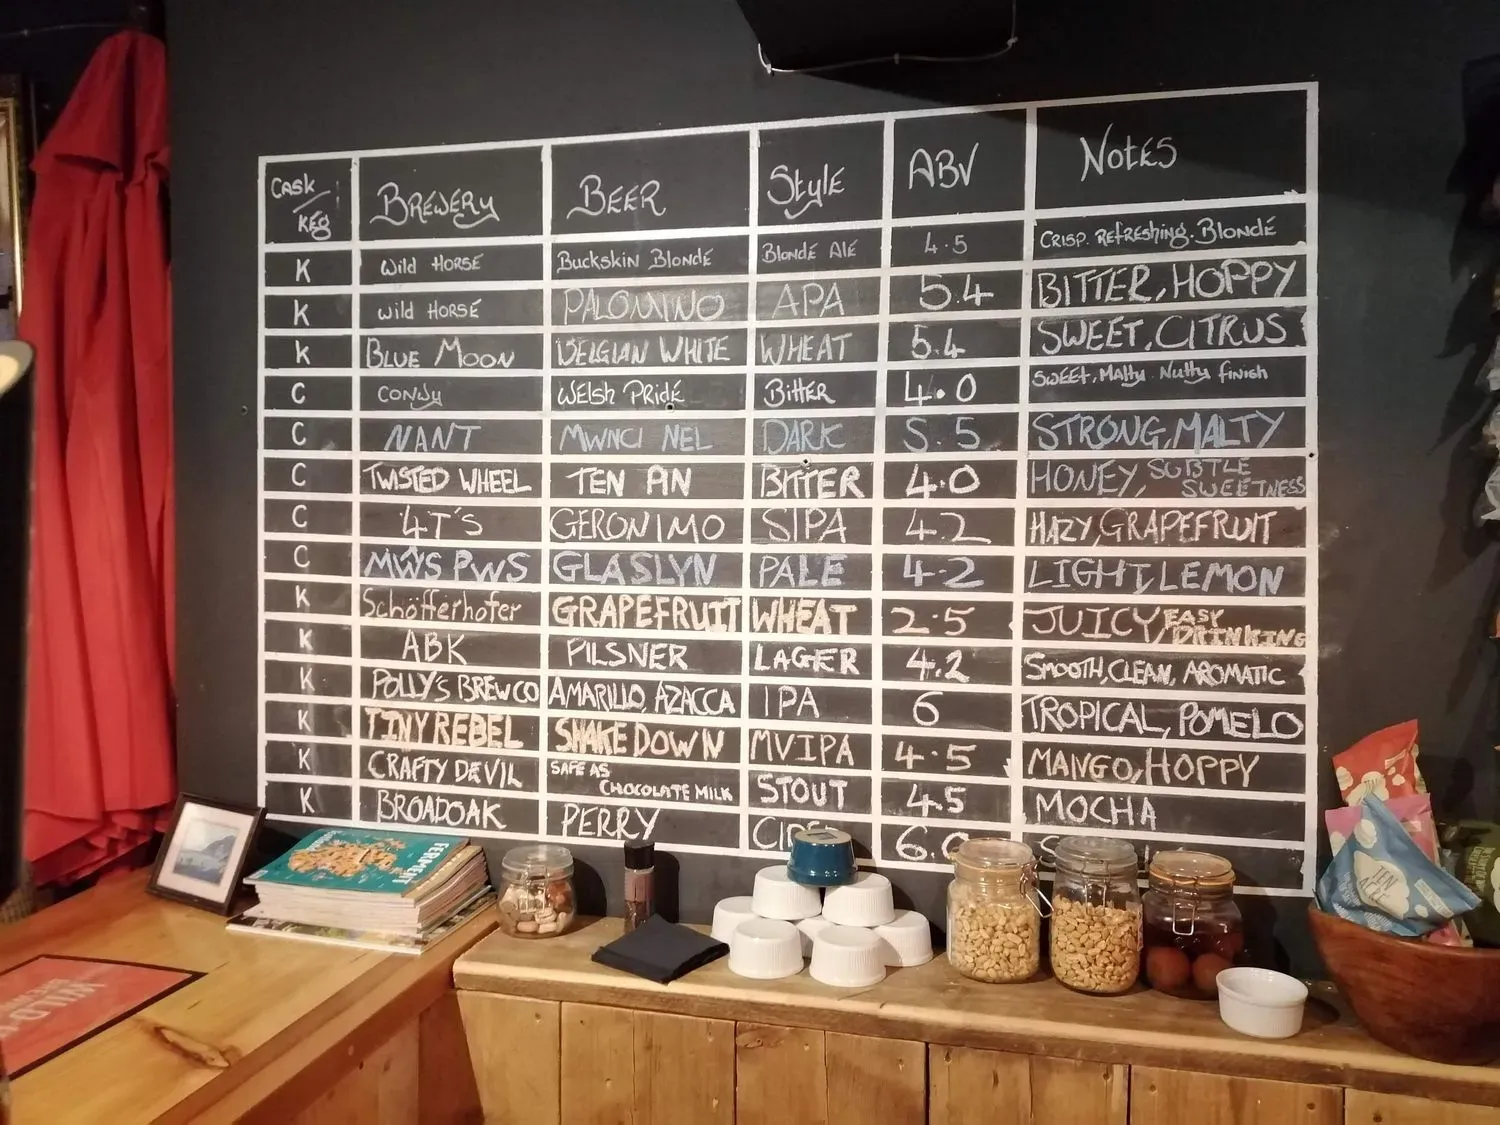 Cask/Keg BREWERY BEER Style ABV NOTES
K Wild HORSE Buckskin Blonde Blonde Ale 4.5 CRISP. Refreshing. Blonde
K Wild HORSE PALOMINO APA 5.4 BITTER, HOPPY
K BLUE MOON BELGIAN WHITE WHEAT 5.4 SWEET, CITRUS
C CONWY Welsh Pride Bitter 4.0 SWEET, Malty. Nutty finish
C NANT MWNCI NEL DARK 5.5 STRONG, MALTY
C TWISTED WHEEL TEN PIN BITTER 4.0 HONEY, SUBTLE SWEETNESS
C 4T'S GERONIMO SIPA 4.2 HAZY, GRAPEFRUIT
C MŴS PWS GLASLYN PALE 4.2 LIGHT, LEMON
K Schöfferhofer GRAPEFRUIT WHEAT 2.5 JUICY, EASY DRINKING
K ABK PILSNER LAGER 4.2 SMOOTH, CLEAN, AROMATIC
K POLLY'S BREW CO AMARILLO, AZACCA IPA 6 TROPICAL, POMELO
K TINY REBEL SHAKE DOWN MVIPA 4.5 MANGO, HOPPY
K CRAFTY DEVIL SAFE AS CHOCOLATE MILK STOUT 4.5 MOCHA
K BROADOAK PERRY 6.0
FERMENT
TEN ACRE
WILD